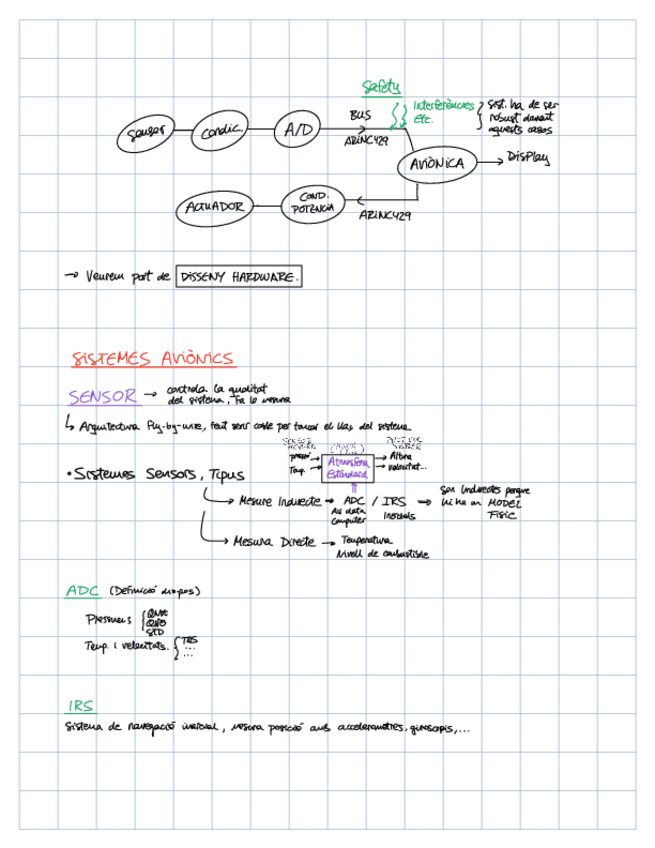 Safety
Sensor
Condic.
A/D
BUS
ARINC429
interferències
etc.
sist. ha de ser
robust davant
aquests casos
AVIÒNICA
Display
ACTUADOR
COND.
POTÈNCIA
ARINC429
→ Veurem part de DISSENY HARDWARE.
SISTEMES AVIÒNICS
SENSOR → controla la qualitat
del sistema, fa la mesura
↳ Arquitectura Fly-by-wire, fent servir cable per tancar el llaç del sistema
pressió
Temp.
Atmosfera
Estàndard
Altura
velocitat...
• Sistemes Sensors, Tipus
→ Mesure Indirecte → ADC / IRS → Son Indirectes perque
Air data
computer
Inercials
hi ha un MODEL
Físic
→ Mesura Directe → Temperatura
Nivell de combustible
ADC (Definició d'apps)
Pressions { QNH
QFE
STD
Temp. i velocitats. { TAS
...
...
IRS
Sistema de navegació inercial, mesura posició amb acceleròmetres, giroscopis,...